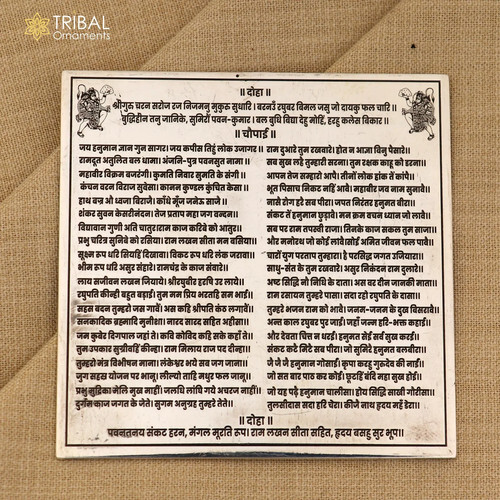 TRIBAL
Ornaments
॥ दोहा ॥
श्रीगुरु चरन सरोज रज निजमनु मुकुरु सुधारि । बरनउँ रघुबर बिमल जसु जो दायकु फल चारि ॥
बुद्धिहीन तनु जानिके, सुमिरौं पवन-कुमार । बल बुधि विद्या देहु मोहिं, हरहु कलेस विकार ॥
॥ चौपाई ॥
जय हनुमान ज्ञान गुन सागर। जय कपीस तिहुं लोक उजागर ॥
रामदूत अतुलित बल धामा। अंजनि-पुत्र पवनसुत नामा ॥
महावीर विक्रम बजरंगी। कुमति निवार सुमति के संगी ॥
कंचन वरन विराज सुवेसा। कानन कुण्डल कुंचित केसा ॥
हाथ बज्र औ ध्वजा बिराजे। काँधे मूँज जनेऊ साजे ॥
शंकर सुवन केसरीनंदन। तेज प्रताप महा जग वन्दन ॥
विद्यावान गुणी अति चातुर। राम काज करिबे को आतुर ॥
प्रभु चरित्र सुनिबे को रसिया। राम लखन सीता मन बसिया ॥
सूक्ष्म रूप धरि सियहिं दिखावा। विकट रूप धरि लंक जरावा ॥
भीम रूप धरि असुर संहारे। रामचंद्र के काज संवारे ॥
लाय सजीवन लखन जियाये। श्रीरघुबीर हरषि उर लाये ॥
रघुपति कीन्ही बहुत बड़ाई। तुम मम प्रिय भरतहि सम भाई ॥
सहस बदन तुम्हरो जस गावें। अस कहि श्रीपति कंठ लगावें ॥
सनकादिक ब्रह्मादि मुनीशा। नारद सारद सहित अहीसा ॥
जम कुबेर दिगपाल जहां ते। कवि कोविद कहि सके कहाँ ते ॥
तुम उपकार सुग्रीवहिं कीन्हा। राम मिलाय राज पर दीन्हा ॥
तुम्हरो मंत्र विभीषन माना। लंकेश्वर भये सब जग जाना ॥
जुग सहस्र योजन पर भानू। लील्यो ताहि मधुर फल जानू ॥
प्रभु मुद्रिका मेलि मुख माहीं। जलधि लांघि गये अचरज नाहीं ॥
दुर्गम काज जगत के जेते। सुगम अनुग्रह तुम्हरे तेते ॥
राम दुआरे तुम रखवारे। होत न आज्ञा विनु पैसारे ॥
सब सुख लहै तुम्हारी सरना। तुम रक्षक काहू को डरना ॥
आपन तेज सम्हारो आपे। तीनों लोक हांक तें कांपे ॥
भूत पिसाच निकट नहिं आवे। महाबीर जब नाम सुनावे ॥
नासे रोग हरे सब पीरा। जपत निरंतर हनुमत बीरा ॥
संकट तें हनुमान छुड़ावे। मन क्रम बचन ध्यान जो लावे ॥
सब पर राम तपस्वी राजा। तिनके काज सकल तुम साजा ॥
और मनोरथ जो कोई लावे। सोई अमित जीवन फल पावे ॥
चारों युग परताप तुम्हारा। है परसिद्ध जगत उजियारा ॥
साधु-संत के तुम रखवारे। असुर निकंदन राम दुलारे ॥
अष्ट सिद्धि नौ निधि के दाता। अस वर दीन जानकी माता ॥
राम रसायन तुम्हरे पासा। सदा रहो रघुपति के दासा ॥
तुम्हरे भजन राम को भावे। जनम-जनम के दुख बिसरावे ॥
अन्त काल रघुबर पुर जाई। जहाँ जन्म हरि-भक्त कहाई ॥
और देवता चित्त न धरई। हनुमत सेई सर्व सुख करई ॥
संकट कटे मिटे सब पीरा। जो सुमिरे हनुमत बलबीरा ॥
जै जै जै हनुमान गोसाईं। कृपा करहु गुरुदेव की नाईं ॥
जो सत बार पाठ कर कोई। छूटहिं बंदि महा सुख होई ॥
जो यह पढ़े हनुमान चालीसा। होय सिद्धि साखी गौरीसा ॥
तुलसीदास सदा हरि चेरा। कीजै नाथ हृदय महँ डेरा ॥
॥ दोहा ॥
पवनतनय संकट हरन, मंगल मूरति रूप। राम लखन सीता सहित, हृदय बसहु सुर भूप ॥